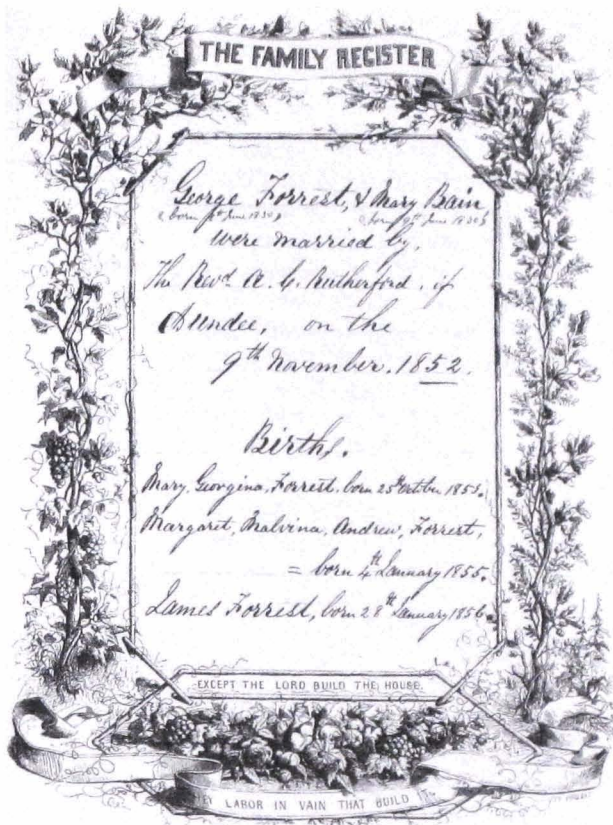 THE FAMILY REGISTER
George Forrest, & Mary Bain
born June 1830 born 9th June 1830
were married by,
The Revd A. C. Rutherford. of
Dundee, on the
9th November. 1852.
Births.
Mary, Georgina, Forrest. born 25th October 1853.
Margaret, Malvina, Andrew, Forrest,
= born 4th January 1855.
James Forrest, born 28th January 1856.
EXCEPT THE LORD BUILD THE HOUSE.
THEY LABOR IN VAIN THAT BUILD IT.